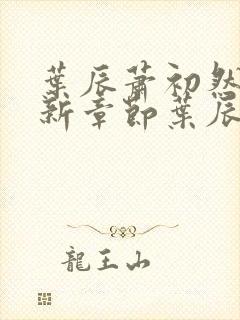 葉辰蕭初然
新章節葉辰
龍王山